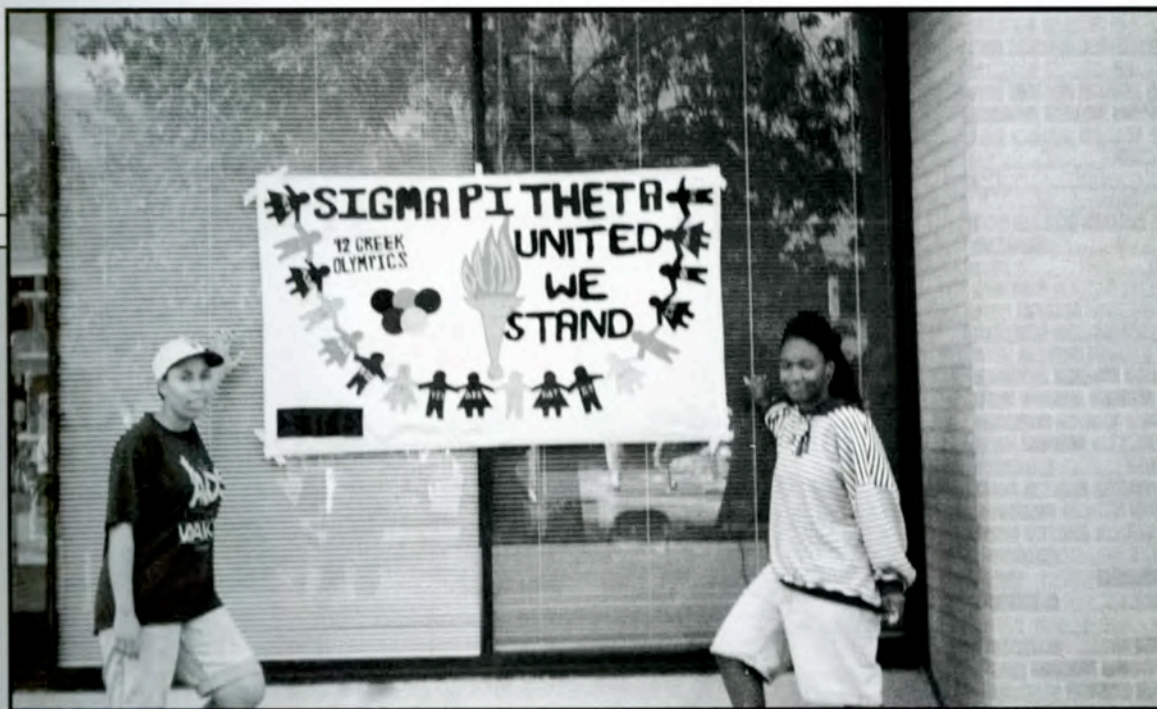 SIGMA PI THETA
'92 GREEK
OLYMPICS
UNITED
WE
STAND